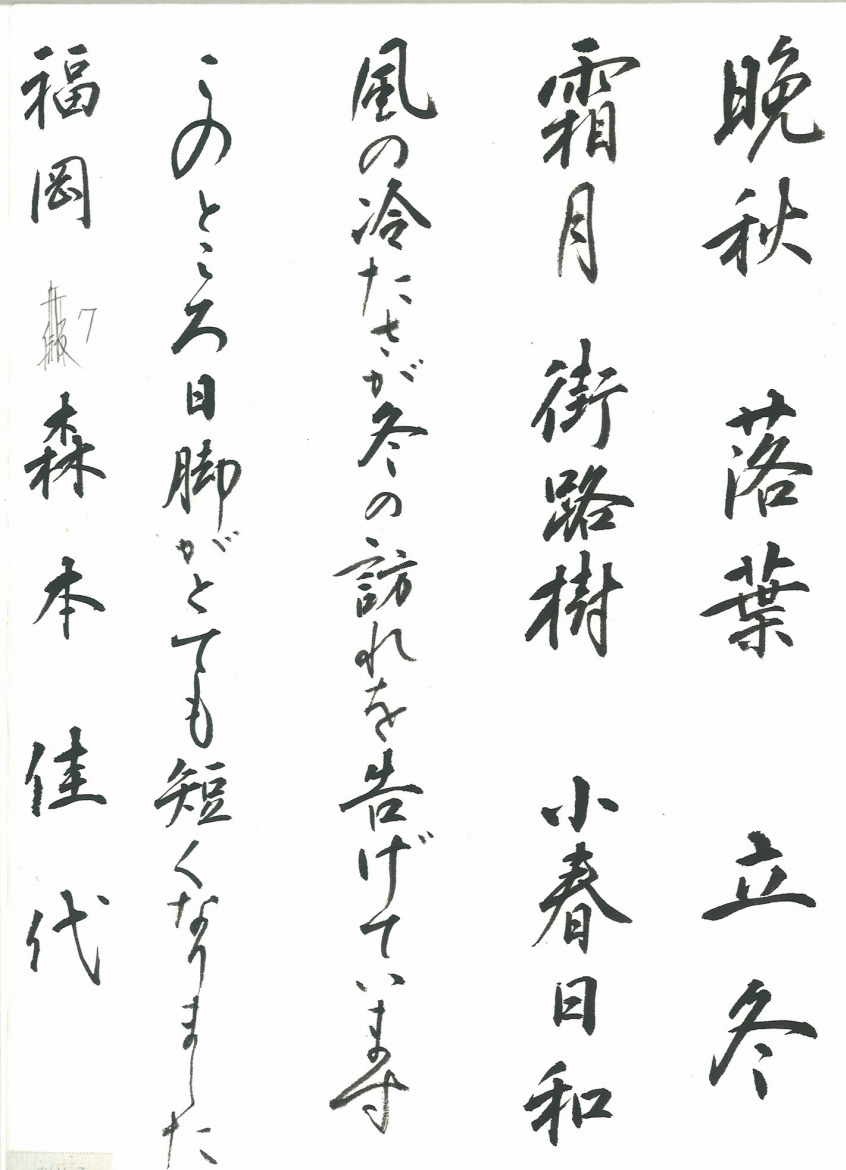 晩秋 落葉 立冬
霜月 街路樹 小春日和
風の冷たさが冬の訪れを告げています
このところ日脚がとても短くなりました
福岡 森本佳代